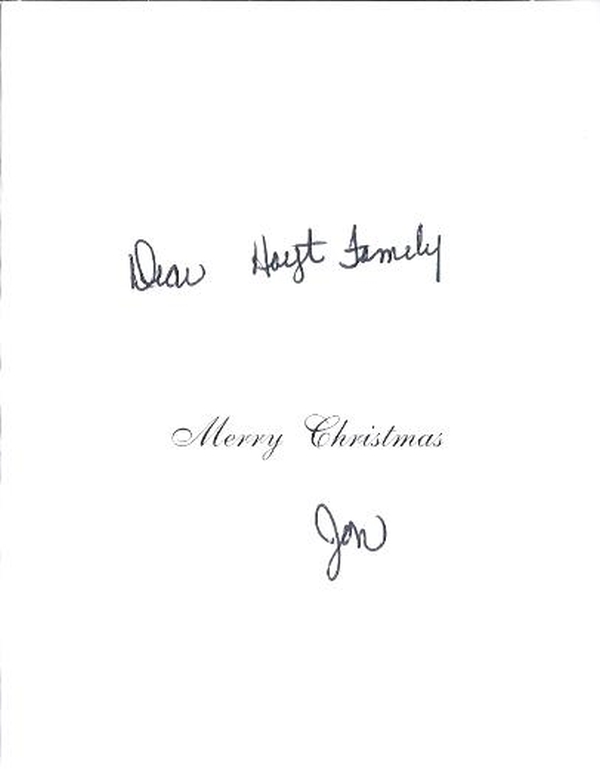 Dear Hoyt Family
Merry Christmas
Jon